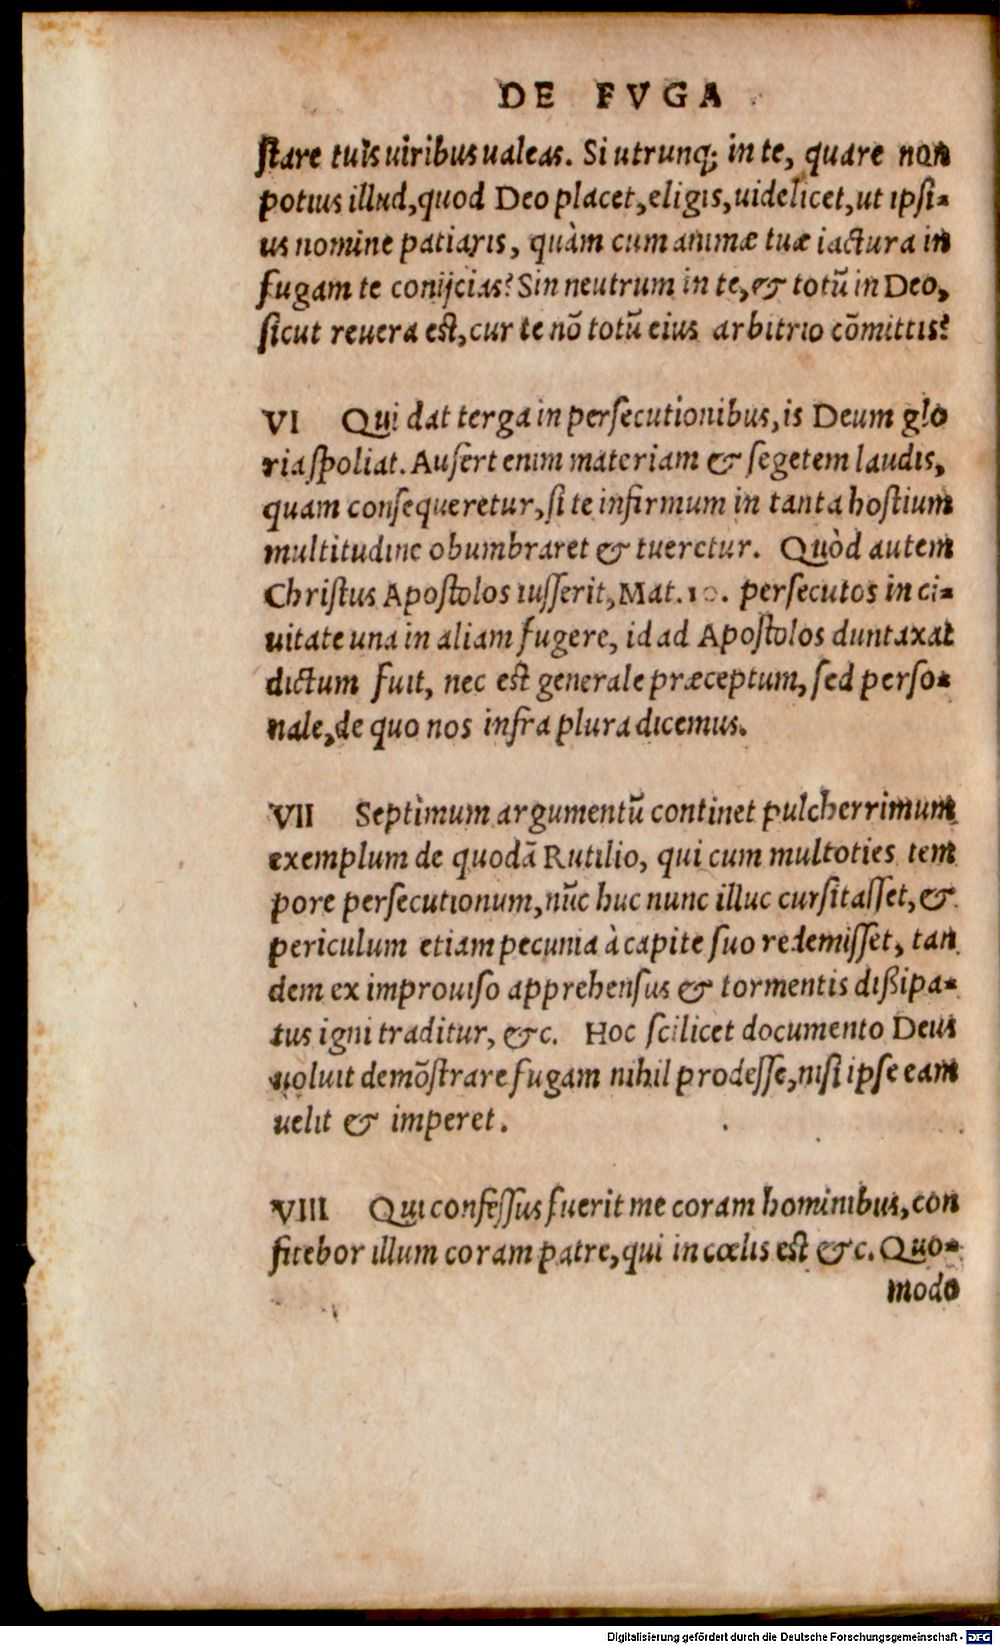 DE FVGA
stare tuis uiribus ualeas. Si utrunq; in te, quare non
potius illud, quod Deo placet, eligis, uidelicet, ut ipsi-
us nomine patiaris, quàm cum animæ tuæ iactura in
fugam te conijcias? Sin neutrum in te, & totũ in Deo,
sicut reuera est, cur te nõ totũ eius arbitrio cõmittis?
VI Qui dat terga in persecutionibus, is Deum glo
ria spoliat. Aufert enim materiam & segetem laudis,
quam consequeretur, si te infirmum in tanta hostium
multitudine obumbraret & tueretur. Quòd autem
Christus Apostolos iusserit, Mat. 10. persecutos in ci-
uitate una in aliam fugere, id ad Apostolos duntaxat
dictum fuit, nec est generale præceptum, sed perso-
nale, de quo nos infra plura dicemus.
VII Septimum argumentũ continet pulcherrimum
exemplum de quodã Rutilio, qui cum multoties tem
pore persecutionum, nũc huc nunc illuc cursitasset, &
periculum etiam pecunia à capite suo redemisset, tan
dem ex improuiso apprehensus & tormentis dißipa-
tus igni traditur, &c. Hoc scilicet documento Deus
uoluit demõstrare fugam nihil prodesse, nisi ipse eam
uelit & imperet.
VIII Qui confessus fuerit me coram hominibus, con
fitebor illum coram patre, qui in cœlis est &c. Quo-
modo
Digitalisierung gefördert durch die Deutsche Forschungsgemeinschaft - DFG